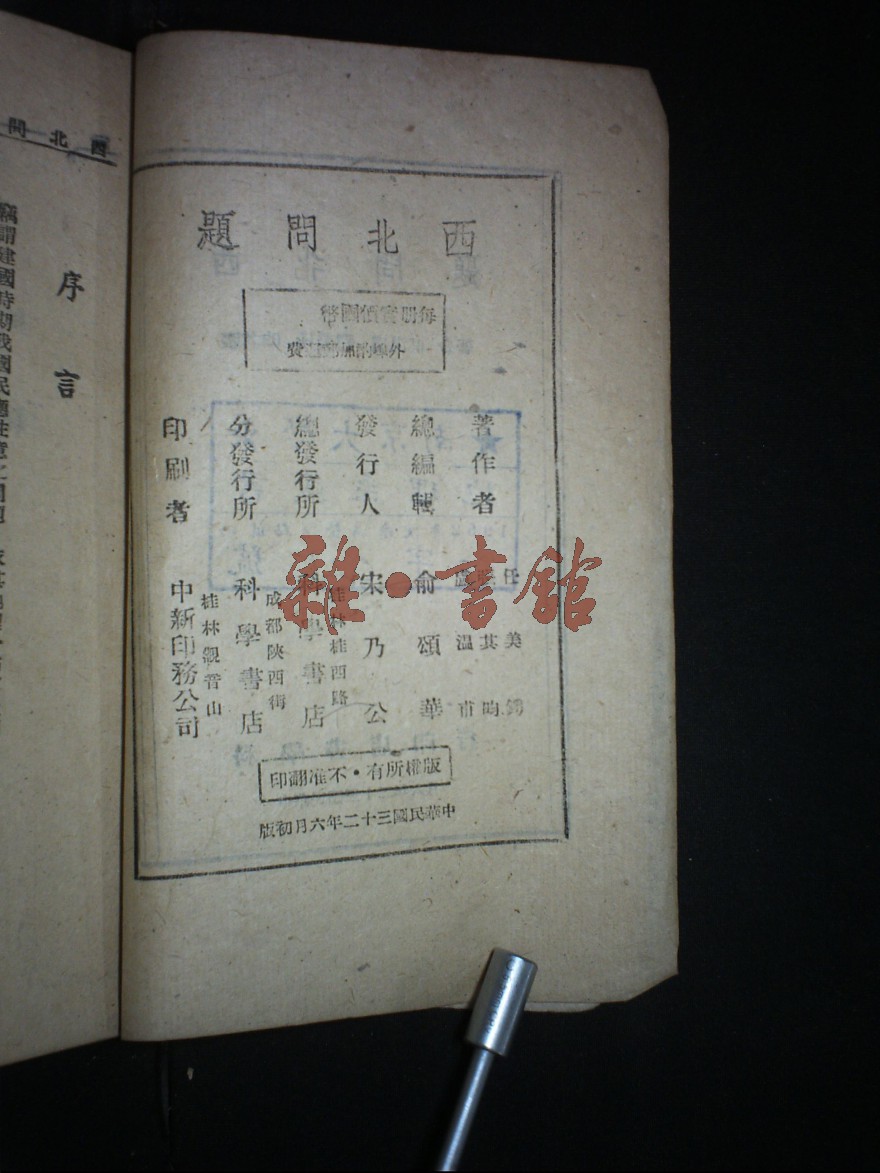 西北問題
每冊實價國幣
外埠酌加郵運費
著作者 任美鍔
其昀
溫甫
總編輯 俞頌華
發行人 宋乃公
總發行所 桂林桂西路
科學書店
分發行所 成都陝西街
科學書店
印刷者 桂林觀音山
中新印務公司
版權所有・不准翻印
中華民國三十二年六月初版
雜・書館
西北問
序言
竊謂建國時期我國民應注意之問題